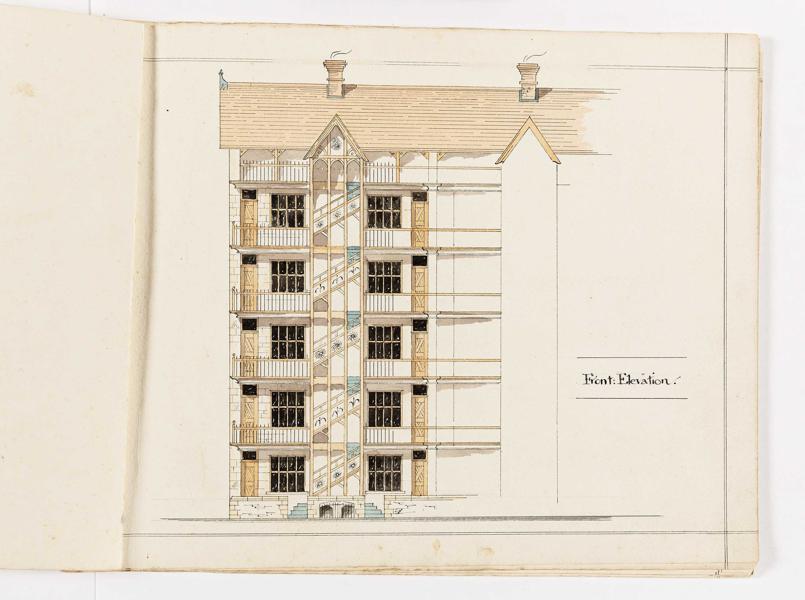 Front: Elevation.